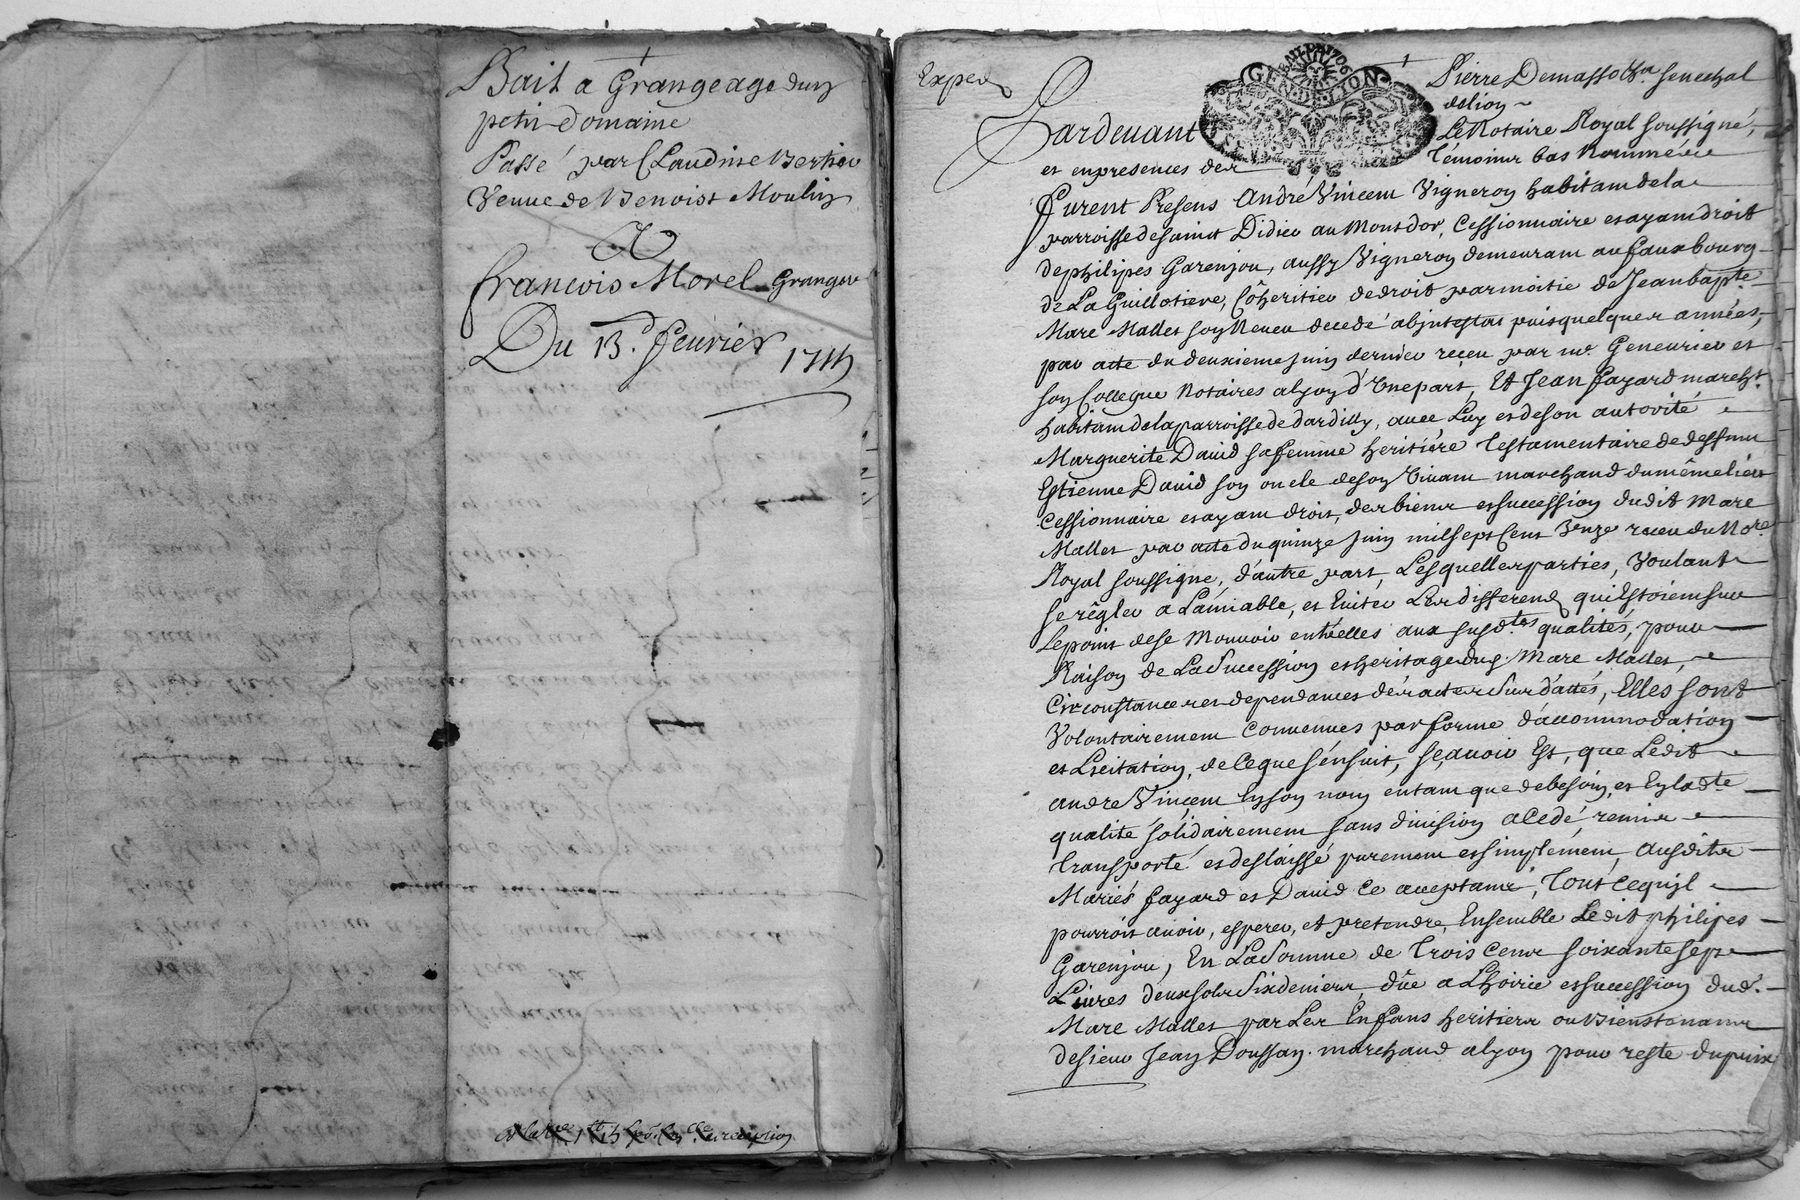 Bail a Grangeage dun
petit Domaine
Passé par Claudine Bertier
Veuve de Benoist Moulin
A
francois Morel Granger
Du 13e. feurier
Exped
Pierre Demasso Sr. senechal
delion
Pardeuant Le Notaire Royal soussigné,
et enpresences des Témoins bas Nommées
furent Presens André Vincent Vigneron habitant de la
parroisse de saint Didier au Montdor, Cessionnaire et ayant droit
de philipes Garenjou, aussy Vigneron demeurant au fauxbourg
de La Guillotiere, Cohéritier de droit par moitie de Jean bapte.
Marc Malles son Neueu decedé abjntestat puis quelques années,
par acte du deuxieme juin dernier reçeu par me. Geneurier et
son Collegue Notaires a lyon d'Vne part, Et Jean fayard marcht.
habitant de la parroisse de dardilly, auec Luy et de son autorité
Marguerite Dauid sa femme heritiére Testamentaire de deffunt
Estienne Dauid son oncle de son Viuant marchand du même lieu
Cessionnaire et ayant droit, des biens et succession dudit Marc
Malles par acte du quinze juin mil sept Cens Treize receu du Nore.
Royal soussigné, d'autre part, Lesquelles parties, Voulant
se régler a Lamiable, et Euiter Les differend qui Estoient sur
Le point de se Mouuoir entr'elles aux susdtes qualités, pour
Raison de La Succession et heritage dud. Marc Malles,
Circonstances et dependances dés actes Surdattés, Elles sont
Volontairement Conuenues par forme d'accommodation
et Licitation, de Ce que s'ensuit, sçauoir Est, que Ledit
andre Vincent En son nom en tant que de besoin, et En ladte
qualité solidairement sans diuision a Cedé, remis
Transporté et deslaissé purement et simplement, Ausdits
Mariés fayard et Dauid Ce acceptans, Tout Ce qu'il
pourroit auoir, esperer, et pretendre, Ensemble Ledit philipes
Garenjou, En La Somme de Trois Cens soixante sept
Liures deux sols Six deniers, dûe a Lhoirie et succession dud.
Marc Malles par Les Enfans heritiers ou bienstenans
de sieur Jean Doussan marchand a lyon pour reste du prix